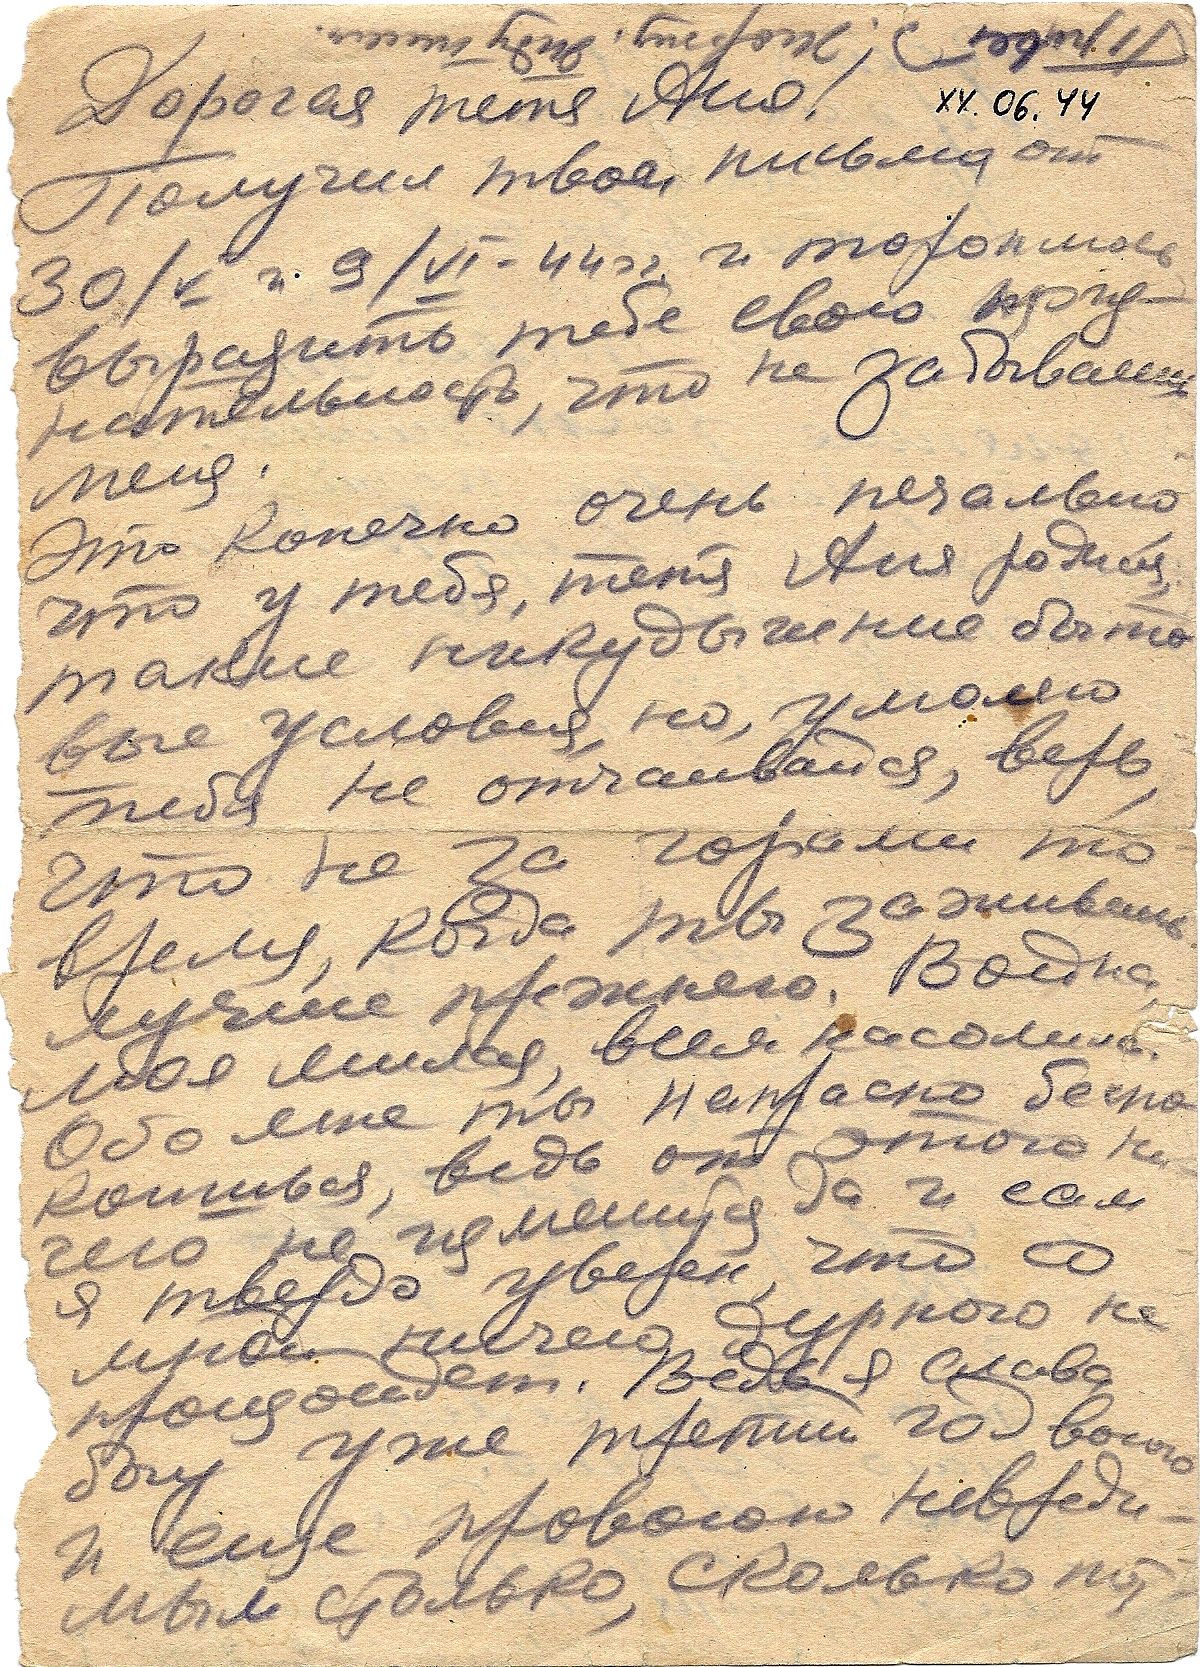 Привет Жоржу. Жду писем.
XX.06.44
Дорогая тетя Аня!
Получил твои письма от
30/V и 9/VI-44 г. и тороплюсь
выразить тебе свою призна-
тельность, что не забываешь
меня.
Это конечно очень печально
что у тебя, тетя Аня родная,
такие никудышние быто
вые условия, но, умоляю
тебя не отчаивайся, верь,
что не за горами то
время, когда ты заживешь
лучше прежнего. Война,
моя милая, всем насолила.
Обо мне ты напрасно беспо
коишься, ведь от этого ни-
чего не изменится да и сам
я твердо уверен, что со
мной ничего дурного не
произойдет. Ведь я слава
богу уже третий год воюю
и еще провоюю невреди-
мым столько, сколько пот